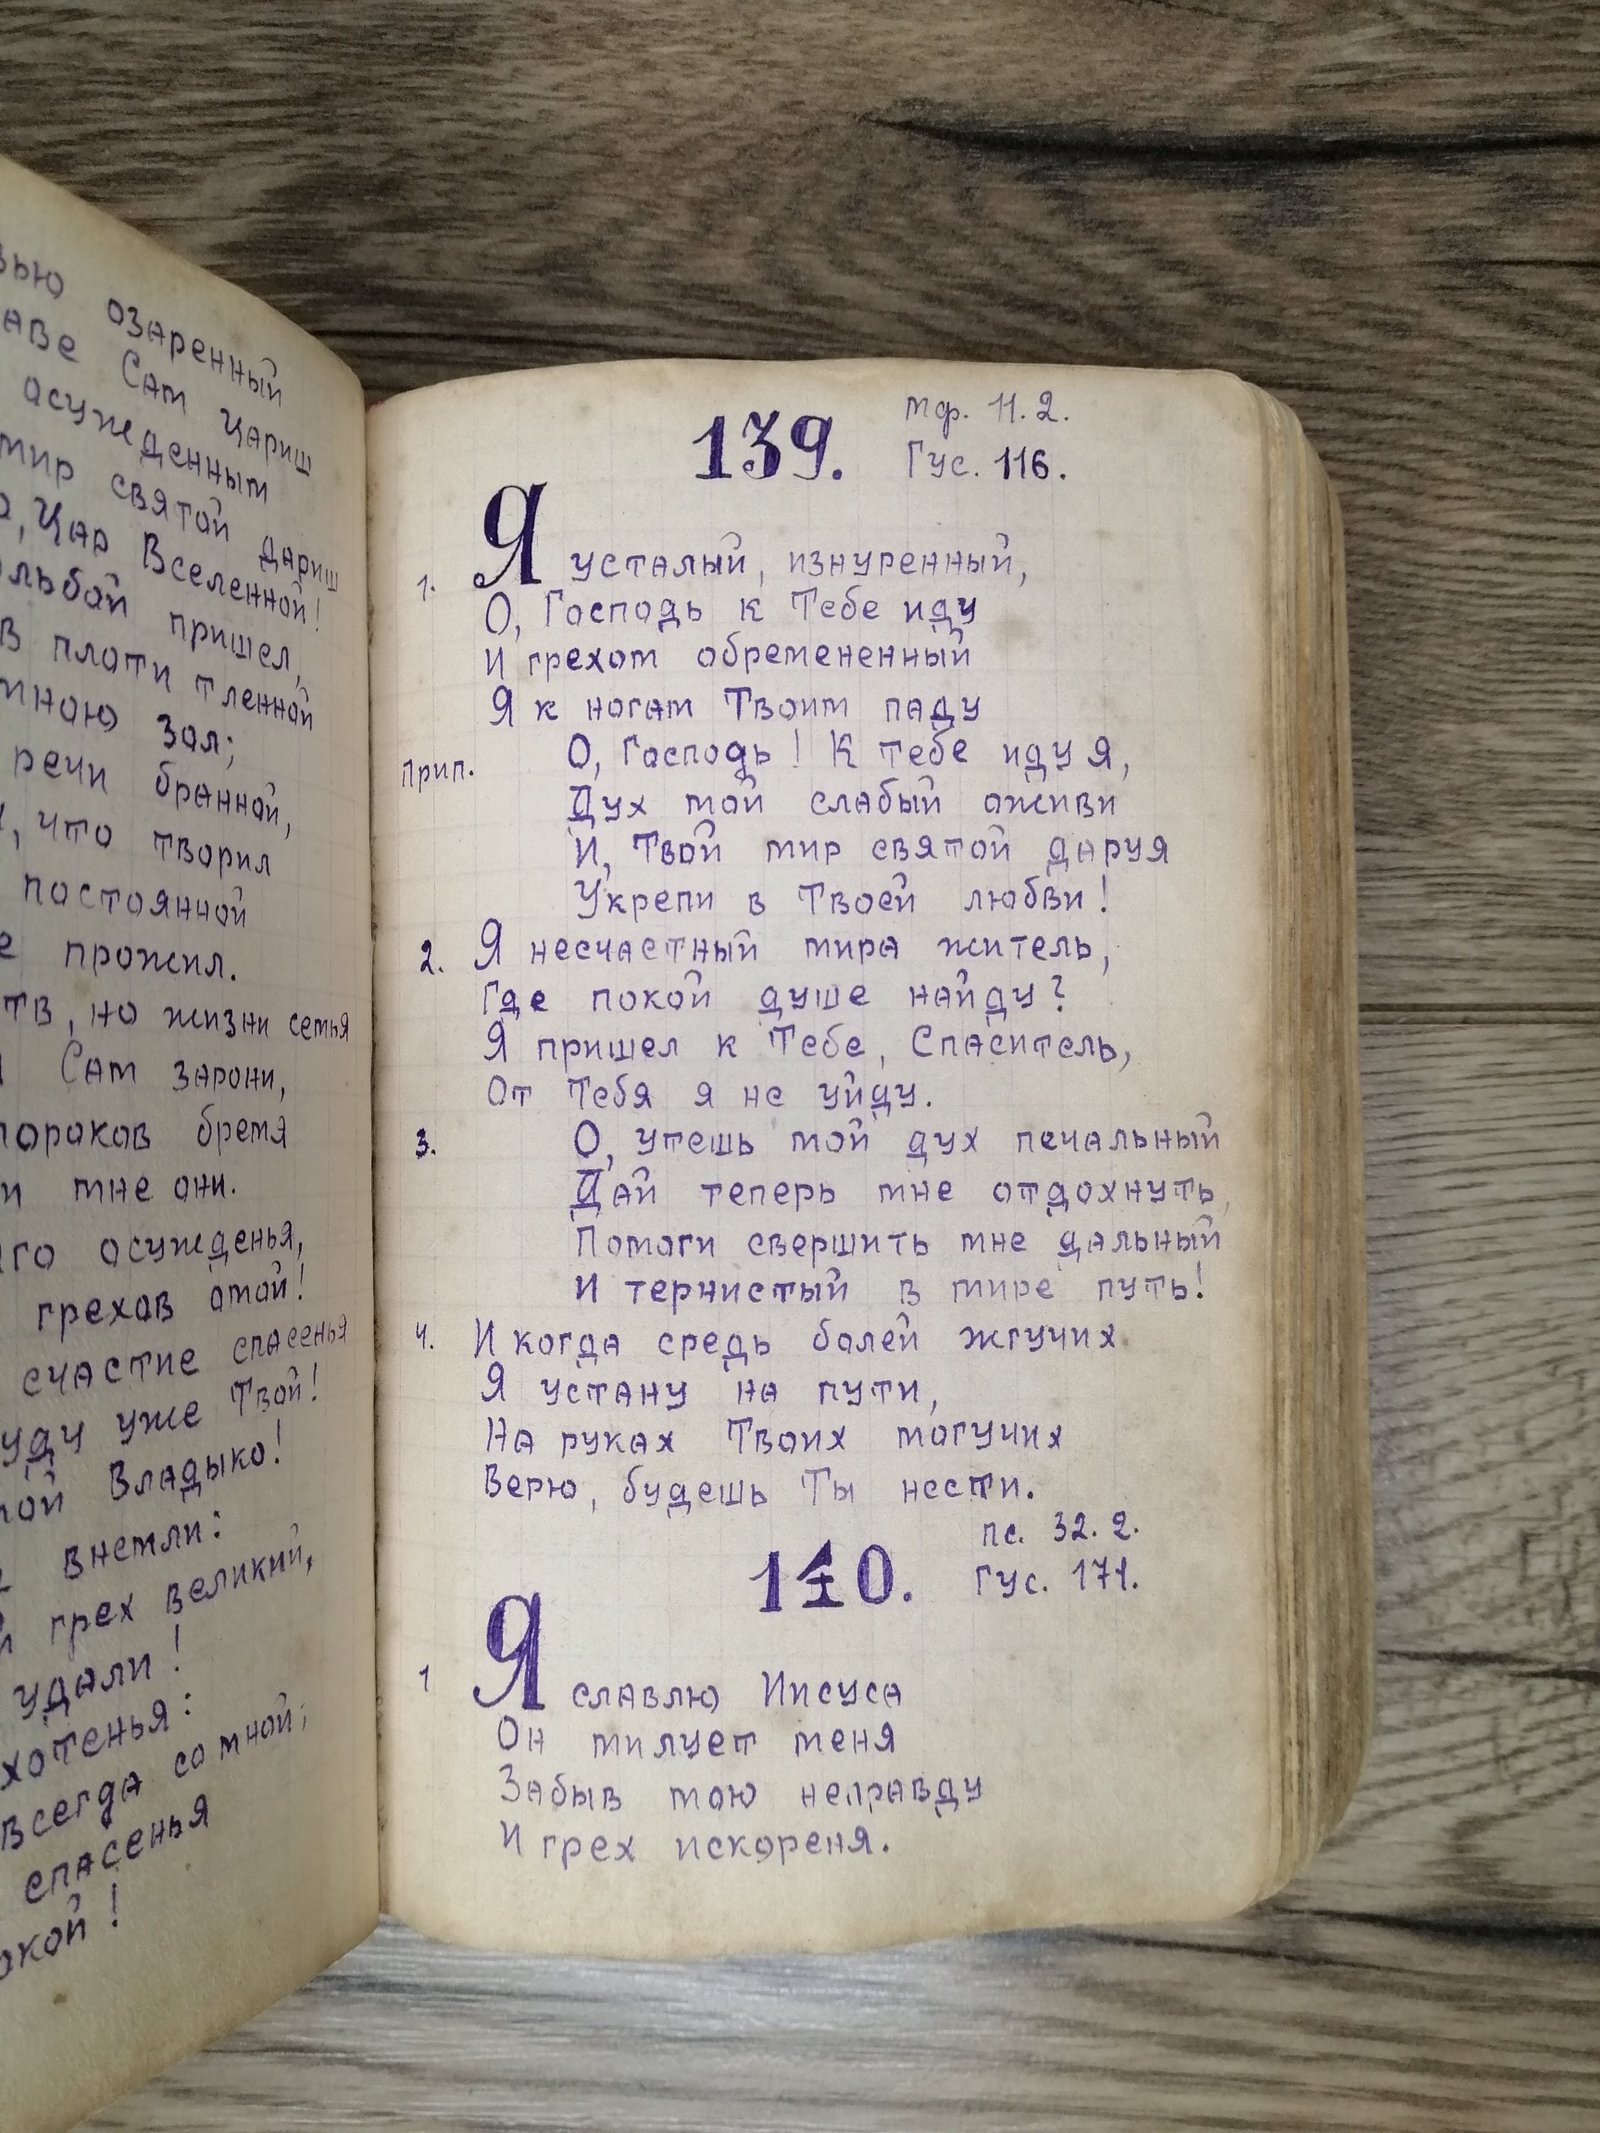 озаренный
Сам Цариш
осужденным
мир святой дариш
, Цар Вселенной!
пришел,
в плоти тленной
мною зол;
речи бранной,
, что творил
постоянной
прожил.
, но жизни семья
Сам зарони,
пороков бремя
мне они.
осужденья,
грехов омой!
счастие спасенья
уже Твой!
Владыко!
внемли:
грех великий,
удали!
хотенья:
всегда со мной;
спасенья
139. мф. 11. 2.
Гус. 116.
1. Я усталый, изнуренный,
О, Господь к Тебе иду
И грехом обремененный
Я к ногам Твоим паду
Прип. О, Господь! К тебе иду я,
Дух мой слабый оживи
И, Твой мир святой даруя
Укрепи в Твоей любви!
2. Я несчастный мира житель,
Где покой душе найду?
Я пришел к Тебе, Спаситель,
От Тебя я не уйду.
3. О, утешь мой дух печальный
Дай теперь мне отдохнуть,
Помоги свершить мне дальный
И тернистый в мире путь!
4. И когда средь болей жгучих
Я устану на пути,
На руках Твоих могучих
Верю, будешь Ты нести.
140. пс. 32. 2.
Гус. 171.
1 Я славлю Иисуса
Он милует меня
Забыв мою неправду
И грех искореня.